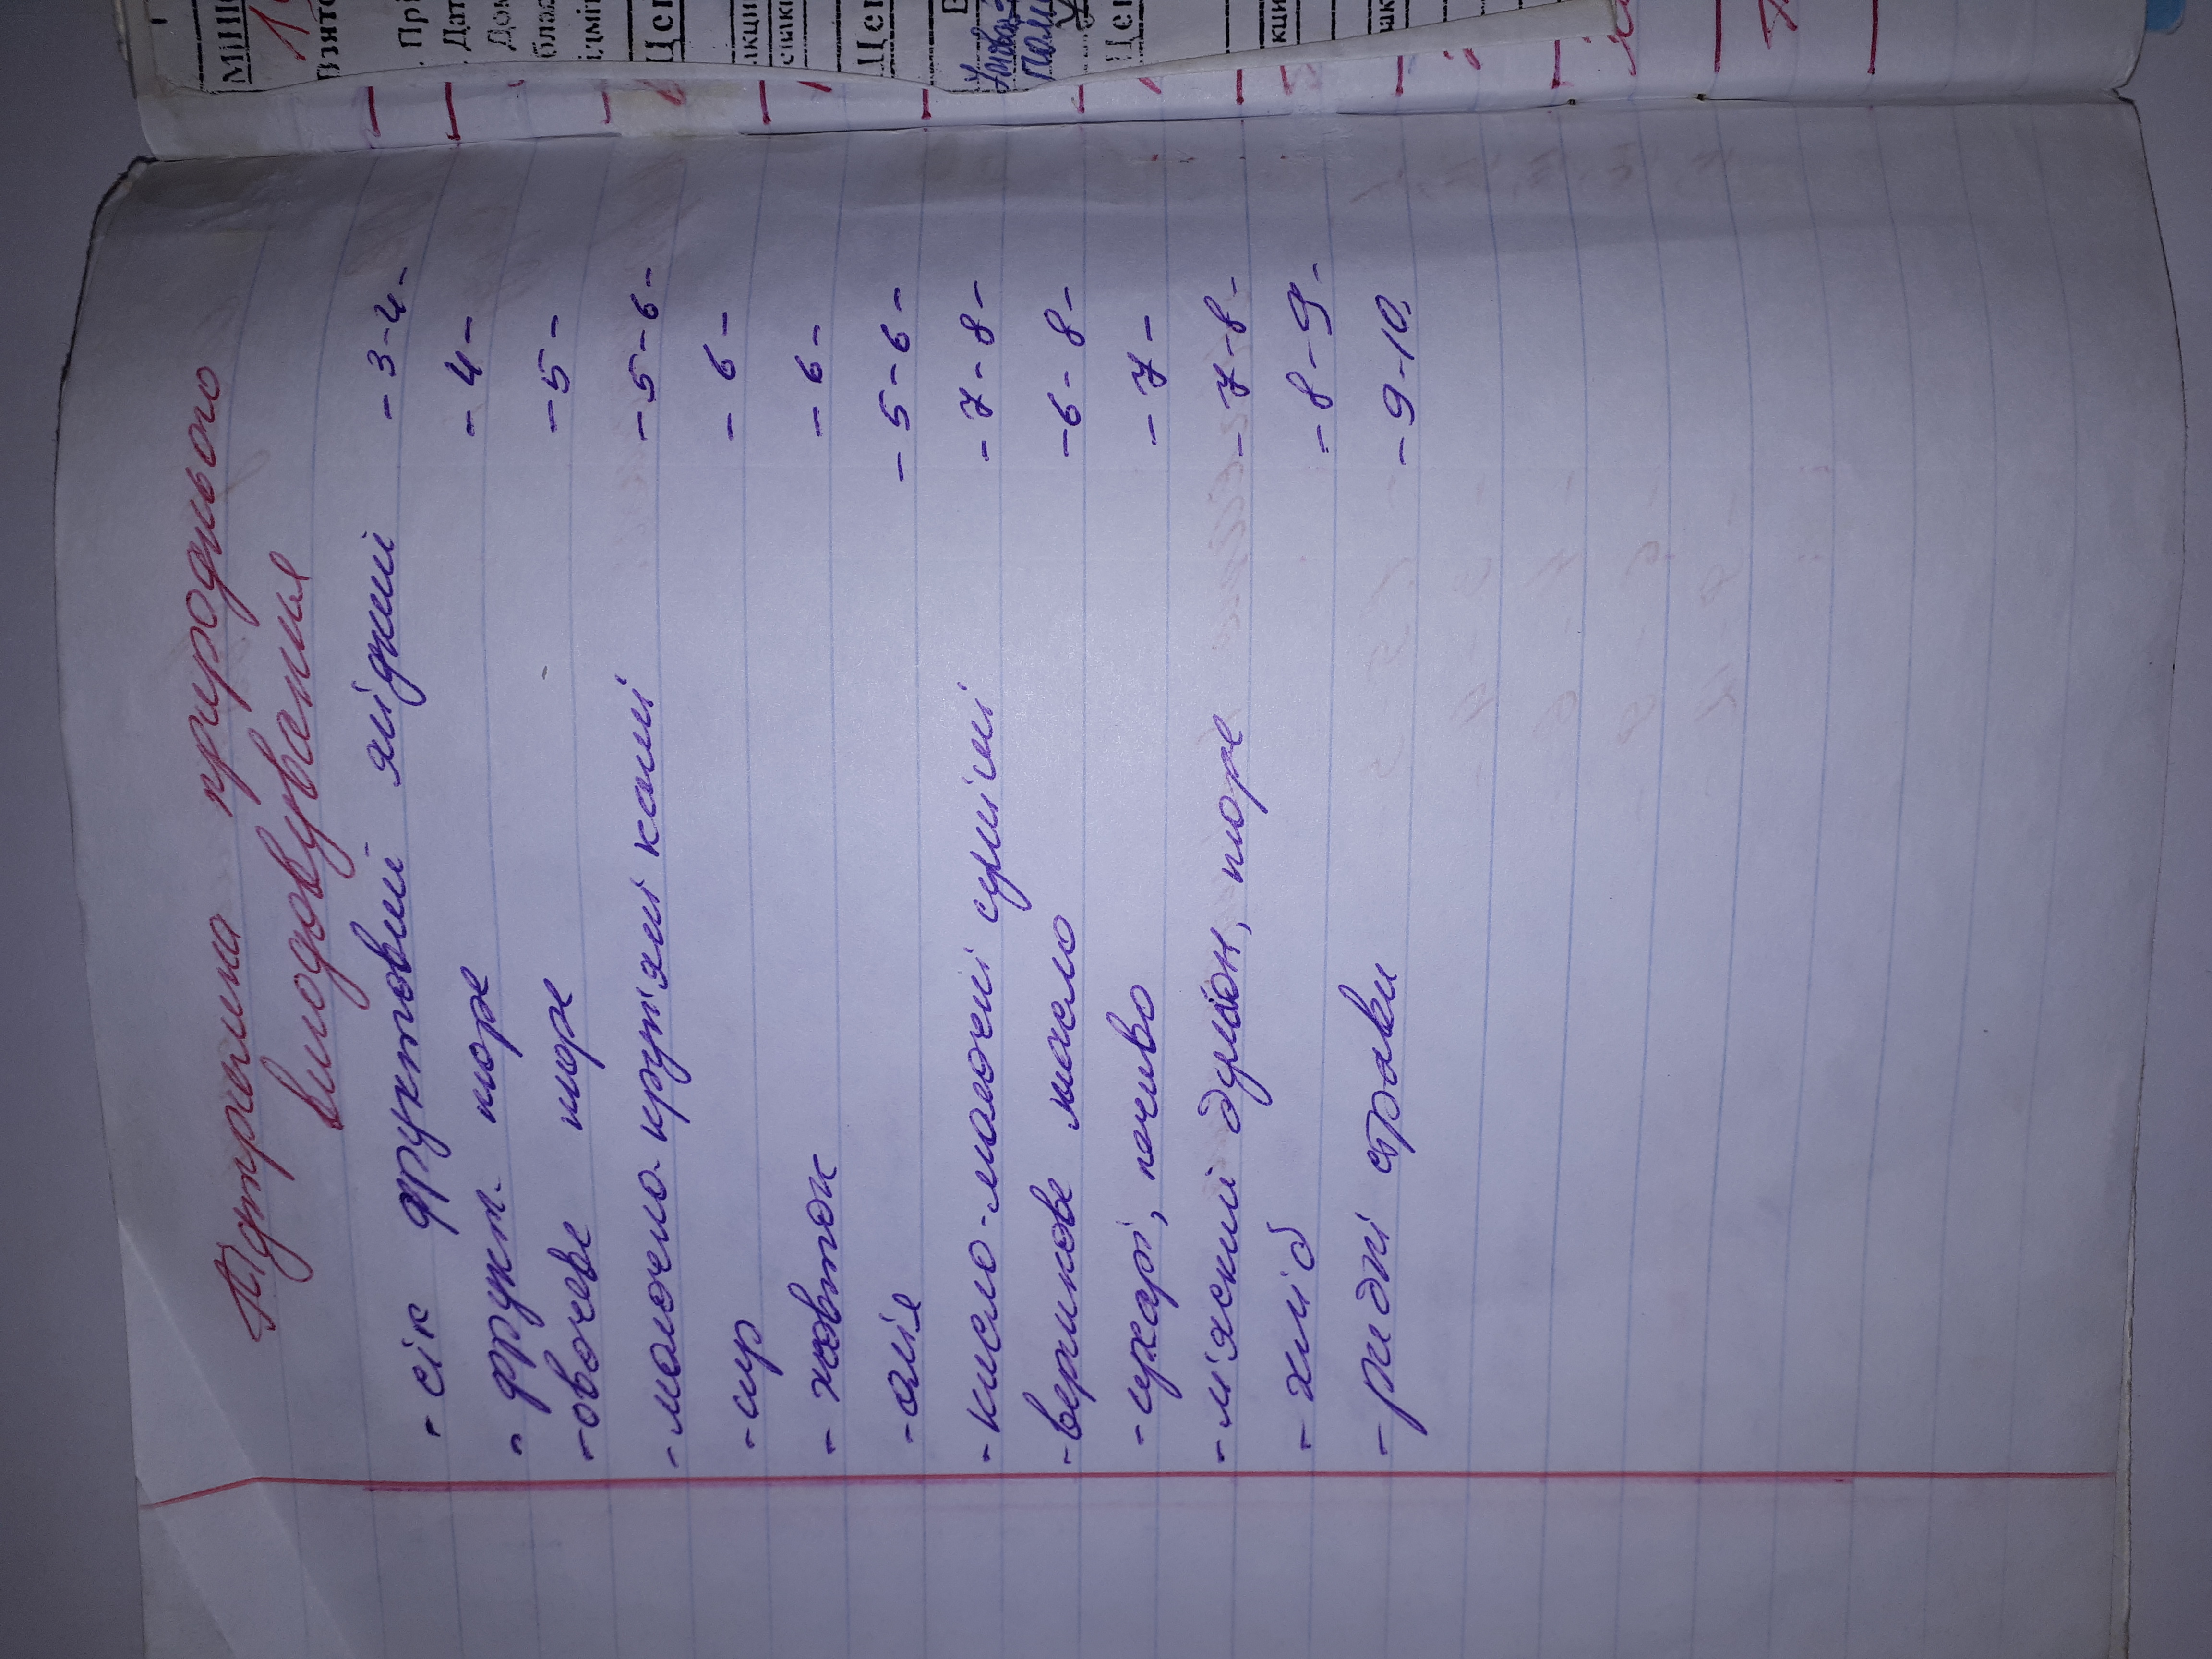 Підтримка природнього
вигодовування
- сік фруктовий ягідний - 3-4 -
- фрукт. пюре - 4 -
- овочеве пюре - 5 -
- молочно-круп'яні каші - 5-6 -
- сир - 6 -
- жовток - 6 -
- олія - 5-6 -
- кисло-молочні суміші - 7-8 -
- вершкове масло - 6-8 -
- сухарі, печиво - 7 -
- м'яский бульон, пюре - 7-8 -
- хліб - 8-9 -
- рибні страви - 9-10.
Взято
Прі
Дат